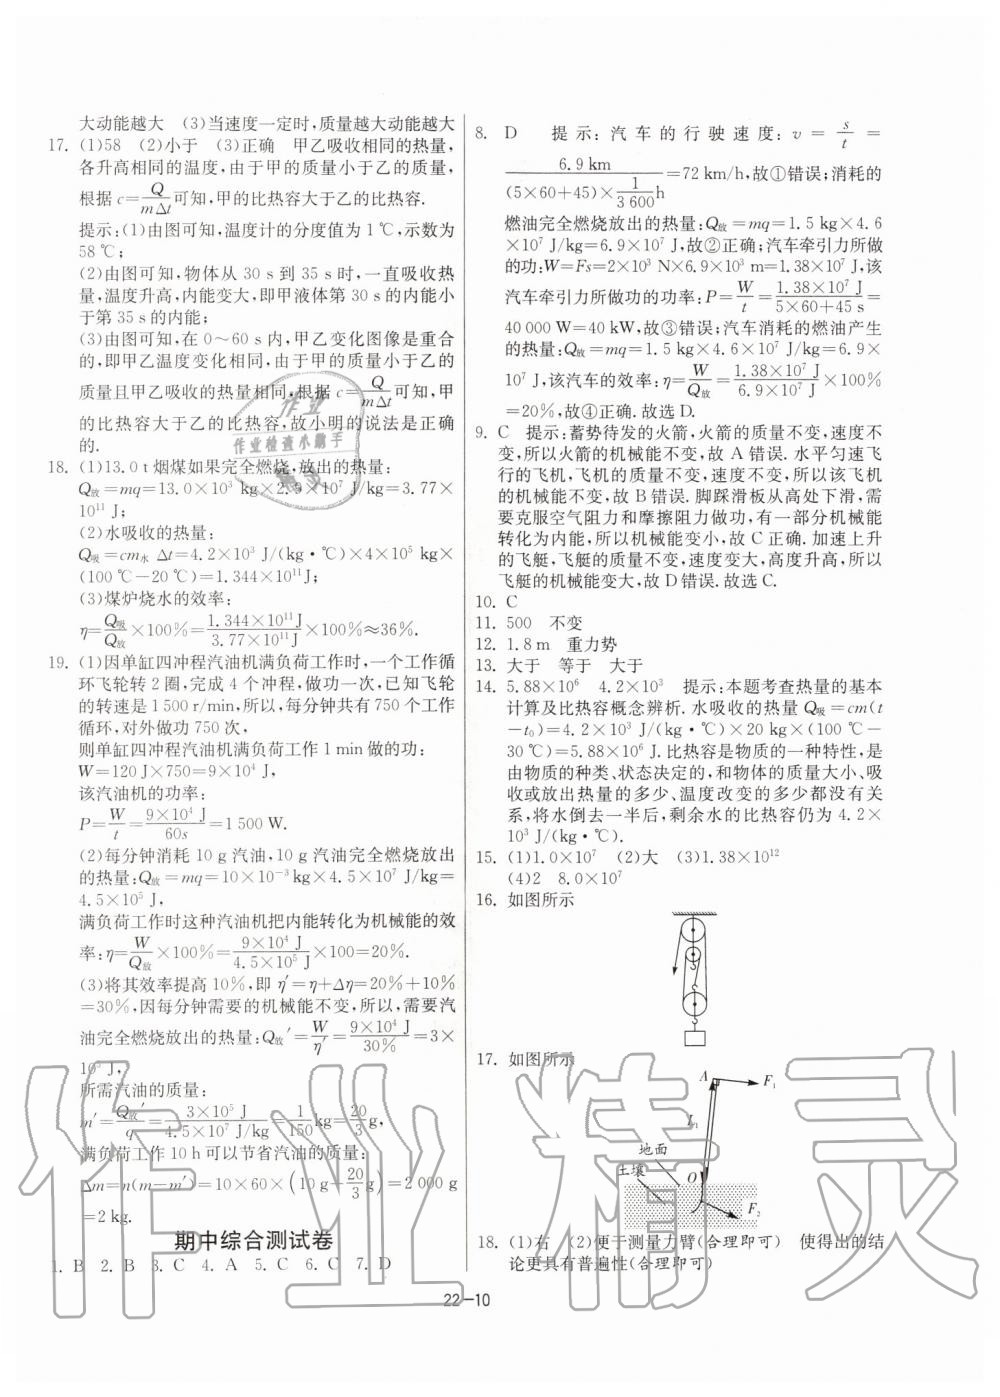 大动能越大　(3)当速度一定时,质量越大动能越大
17. (1)58　(2)小于　(3)正确　甲乙吸收相同的热量,
各升高相同的温度,由于甲的质量小于乙的质量,
根据c=Q/(mΔt)可知,甲的比热容大于乙的比热容.
提示:(1)由图可知,温度计的分度值为1 ℃,示数为
58 ℃;
(2)由图可知,物体从30 s到35 s时,一直吸收热
量,温度升高,内能变大,即甲液体第30 s的内能小
于第35 s的内能;
(3)由图可知,在0～60 s内,甲乙变化图像是重合
的,即甲乙温度变化相同,由于甲的质量小于乙的
质量且甲乙吸收的热量相同,根据c=Q/(mΔt)可知,甲
的比热容大于乙的比热容,故小明的说法是正确
的.
18. (1)13.0 t烟煤如果完全燃烧,放出的热量:
Q放=mq=13.0×10³ kg×2.9×10⁷ J/kg=3.77×
10¹¹ J;
(2)水吸收的热量:
Q吸=cm水 Δt=4.2×10³ J/(kg·℃)×4×10⁵ kg×
(100 ℃-20 ℃)=1.344×10¹¹J;
(3)煤炉烧水的效率:
η=Q吸/Q放×100%=(1.344×10¹¹J)/(3.77×10¹¹J)×100%≈36%.
19. (1)因单缸四冲程汽油机满负荷工作时,一个工作循
环飞轮转2圈,完成4个冲程,做功一次,已知飞轮
的转速是1 500 r/min,所以,每分钟共有750个工作
循环,对外做功750次,
则单缸四冲程汽油机满负荷工作1 min做的功:
W=120 J×750=9×10⁴ J,
该汽油机的功率:
P=W/t=(9×10⁴ J)/60s=1 500 W.
(2)每分钟消耗10 g汽油,10 g汽油完全燃烧放出
的热量:Q放=mq=10×10⁻³ kg×4.5×10⁷ J/kg=
4.5×10⁵ J,
满负荷工作时这种汽油机把内能转化为机械能的效
率:η=W/Q放×100%=(9×10⁴ J)/(4.5×10⁵ J)×100=20%.
(3)将其效率提高10%,即η′=η+Δη=20%+10%
=30%,因每分钟需要的机械能不变,所以,需要汽
油完全燃烧放出的热量:Q放′=W/η′=(9×10⁴ J)/30%=3×
10⁵ J,
所需汽油的质量:
m′=Q放′/q=(3×10⁵ J)/(4.5×10⁷ J/kg)=1/150kg=20/3g,
满负荷工作10 h可以节省汽油的质量:
Δm=n(m-m′)=10×60×(10 g-20/3g)=2 000 g
=2 kg.
期中综合测试卷
1. B　2. B　3. C　4. A　5. C　6. C　7. D
8. D　提示:汽车的行驶速度:v=s/t=
6.9 km/((5×60+45)×1/3 600h)=72 km/h,故①错误;消耗的
燃油完全燃烧放出的热量:Q放=mq=1.5 kg×4.6
×10⁷ J/kg=6.9×10⁷ J,故②正确;汽车牵引力所做
的功:W=Fs=2×10³ N×6.9×10³ m=1.38×10⁷ J,该
汽车牵引力所做功的功率:P=W/t=(1.38×10⁷ J)/(5×60+45 s)=
40 000 W=40 kW,故③错误;汽车消耗的燃油产生
的热量:Q放=mq=1.5 kg×4.6×10⁷ J/kg=6.9×
10⁷ J,该汽车的效率:η=W/Q放=(1.38×10⁷ J)/(6.9×10⁷ J)×100%
=20%,故④正确.故选D.
9. C　提示:蓄势待发的火箭,火箭的质量不变,速度不
变,所以火箭的机械能不变,故A错误.水平匀速飞
行的飞机,飞机的质量不变,速度不变,所以该飞机
的机械能不变,故B错误.脚踩滑板从高处下滑,需
要克服空气阻力和摩擦阻力做功,有一部分机械能
转化为内能,所以机械能变小,故C正确.加速上升
的飞艇,飞艇的质量不变,速度变大,高度升高,所以
飞艇的机械能变大,故D错误.故选C.
10. C
11. 500　不变
12. 1.8 m　重力势
13. 大于　等于　大于
14. 5.88×10⁶　4.2×10³　提示:本题考查热量的基本
计算及比热容概念辨析.水吸收的热量Q吸=cm(t
-t₀)=4.2×10³ J/(kg·℃)×20 kg×(100 ℃-
30 ℃)=5.88×10⁶ J.比热容是物质的一种特性,是
由物质的种类、状态决定的,和物体的质量大小、吸
收或放出热量的多少、温度改变的多少都没有关
系,将水倒去一半后,剩余水的比热容仍为4.2×
10³ J/(kg·℃).
15. (1)1.0×10⁷　(2)大　(3)1.38×10¹²
(4)2　8.0×10⁷
16. 如图所示
17. 如图所示
A
F₁
地面
土壤
O
F₂
18. (1)右　(2)便于测量力臂(合理即可)　使得出的结
论更具有普遍性(合理即可)
22—10
作业
作业检查小助手
作业精灵